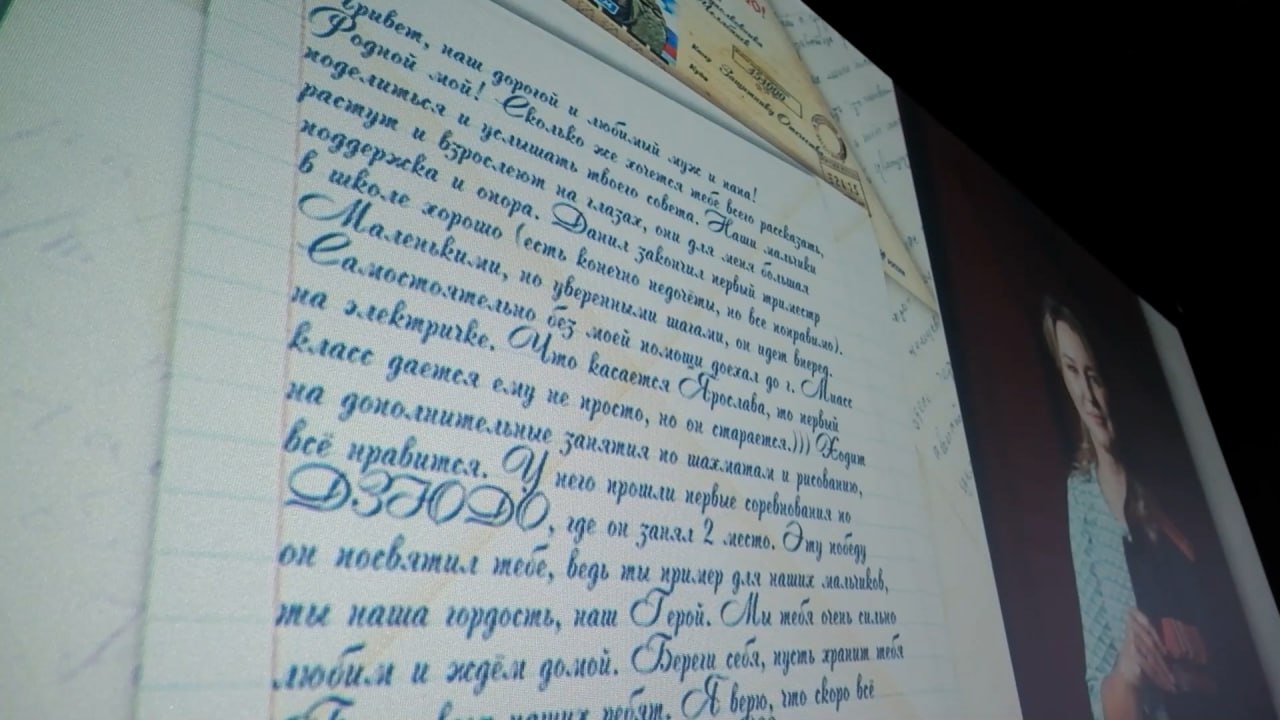 Привет, наш дорогой и любимый муж и папа!
Родной мой! Сколько же хочется тебе всего рассказать,
поделиться и услышать твоего совета. Наши мальчики
растут и взрослеют на глазах, они для меня большая
поддержка и опора. Данил закончил первый триместр
в школе хорошо (есть конечно недочёты, но все поправимо).
Маленькими, но уверенными шагами, он идет вперед.
Самостоятельно без моей помощи доехал до г. Миасс
на электричке. Что касается Ярослава, то первый
класс дается ему не просто, но он старается.))) Ходит
на дополнительные занятия по шахматам и рисованию,
всё нравится. У него прошли первые соревнования по
ДЗЮДО, где он занял 2 место. Эту победу
он посвятил тебе, ведь ты пример для наших мальчиков,
ты наша гордость, наш Герой. Мы тебя очень сильно
любим и ждём домой. Береги себя, пусть хранит тебя
наших ребят. Я верю, что скоро всё
Кому
Куда
Защитнику Отечества